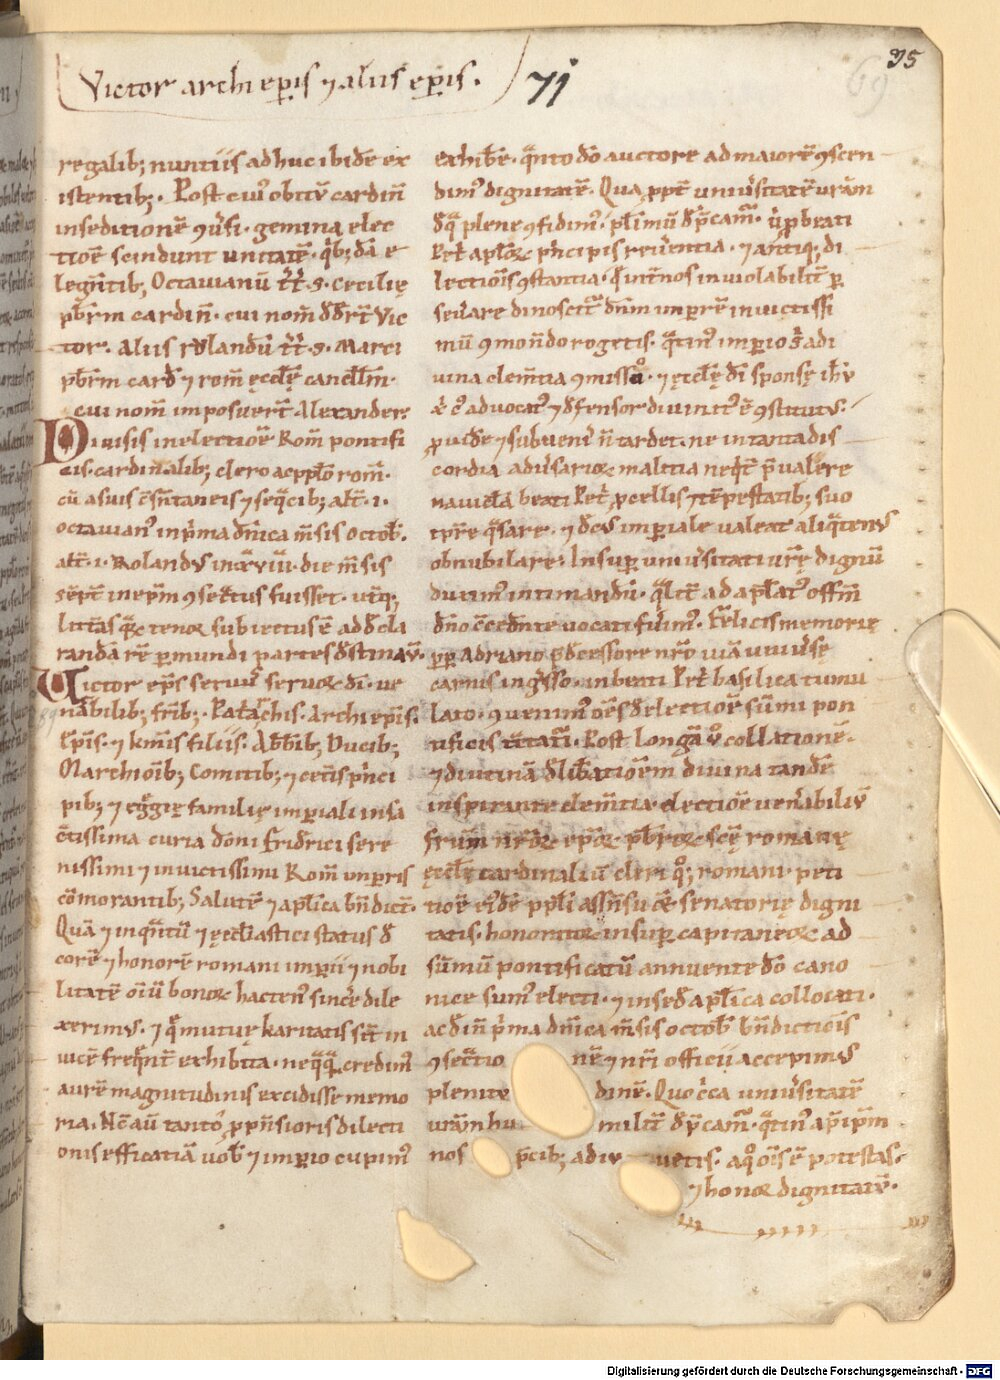 Victor archiep̄is ⁊ aliis ep̄is.
71
95
69
regalib; nuntiis adhuc ibidē ex
istentib;. Post cui' obitū cardiñ
in seditionē ꝯu'si. gemina elec
tioē scindunt unitatē. qͥb;dā e
legn̄tib; Octauianū tt̄. s. cecilię
pb̄rm cardiñ. cui nom̄ ded̄rt Vic
tor. Aliis rolandū tt̄. s. Marci
pb̄rm card̄ ⁊ rom̄ ęccl̄ę cancell̄m.
cui nom̄ imposuert̄ Alexander.
Diuisis in electioē Rom̄ pontifi
cis. cardinalib; clero ac ppl̄o rom̄.
cū a suis ꝯsn̄taneis ⁊ seqͣcib; alt̄. i.
octauian' in pͥma dn̄ica m̄sis octob̄.
alt̄. i. Rolandus in xviii. die m̄sis
sept̄ in ep̄m ꝯsecͣtus fuisset. utq;
litt̄as qͣꝝ tenor subiectus ē ad decla
randā rē p̱ mundi partes destinaū.
Victor ep̄s seruus seruoꝝ dī. ue
nabilib; frīb;. Patͥarchis. Archiep̄is.
Ep̄is. ⁊ km̄is filiis. Abb̄ib; Ducib;
Marchioīb; Comitib; ⁊ cet̄is pͥnci
pib; ⁊ egͤgię familię imp̱iali in sa
cͣtissima curia domī friderici sere
nissimi ⁊ inuictissimi Rom̄ imp̱ris
cōmorantib; Salutē ⁊ apl̄ica bn̄dict̄.
Quā ⁊ inqͣntū ⁊ ęccl̄iastici status de
corē ⁊ honorē romani imp̱ii ⁊ nobi
litatē oīū bonoꝝ hacten' sincͤe dile
xerim'. ⁊ qͣ mutuę karitatis sīt in
uicē freqͥnt̄ exhibita. neqͣqͣ credim'
aurē magnitudinis excidisse memo
ria. Nc̄ aū tanto ꝓpn̄sioris dilecti
onis efficatiā uob̄ ⁊ imp̱io cupim'
exhibͤe. qͣnto dō auctore ad maiorē ꝯscen
dim' dignitatē. Qua ꝓpt̄ uniu'sitatē urām
de qͣ plene ꝯfidim'. pl̄imū dep̄cam̄. ut ꝓ beati
Pet̄ apl̄oꝝ pͥncipis reu'entia. ⁊ antiq; di
lectiois ꝯstantia. q̄ int̄ nos inuiolabilit̄ p̱
seu'are dinoscit̄ dn̄m imp̱rē inuictissi
mū ꝯmonēdo rogetis. qͣtin' imp̱io sͥ a di
uina clem̄tia ꝯmisso. ⁊ ęccl̄ę dī sponsę ih̄u
x̄ c' aduocat' ⁊ defensor diuinit' ē ꝯstitutus.
ꝓuidͤe ⁊ subuenire n̄ tardet. ne in tanta dis
cordia adu'sarioꝝ malitia neqͥt p̄ualere
nauiclā beati Pet̄ ꝓcellis ⁊ tēpestatib; suo
tpr̄e qͣsare. ⁊ decus imp̱iale ualeat aliqͣtenus
obnubilare. Insup̱ uniu'sitati ur̄ę dignū
duxim' intimandū. qͣlit̄ ad apl̄at' offm̄
dn̄o ꝯcedn̄te uocati fuim'. Felicis memorię
pp̄ Adriano p̄decessore nr̄o uiā uniu'sę
carnis ingͤsso. in beati Pet̄ basilica tumu
lato. ꝯuenim' oēs de electioē sūmi pon
tificis tͣctaturi. Post longā u̇ collationē.
⁊ diutinā delibͣatioēm diuina tandē
inspirante clem̄tia electioē uenabiliū
frūm nr̄oꝝ ep̄oꝝ pb̄roꝝ scē romanę
ęccl̄ę cardinaliū cleri qͦ; romani peti
tioē ei'dē ppl̄i assn̄su ē senatorię digni
tatis. honoratoꝝ insup̱ capitaneoꝝ ad
sūmū pontificatū annuente dō cano
nice sum' electi. ⁊ in sede apl̄ica collocati.
ac dein̄ pͥma dn̄ica m̄sis octob̄ bn̄dictiois
ꝯsecͣtio nē ⁊ nr̄i officii accepimus
plenitu dinē. Quo cͥca uniu'sitatē
urām hu milit̄ dep̄cam̄. qͣtin' ap̱ ip̄m
nos p̄cib; adiu uetis. a qͦ oīs ē potestas.
⁊ honoꝝ dignitatū.
Digitalisierung gefördert durch die Deutsche Forschungsgemeinschaft - DFG